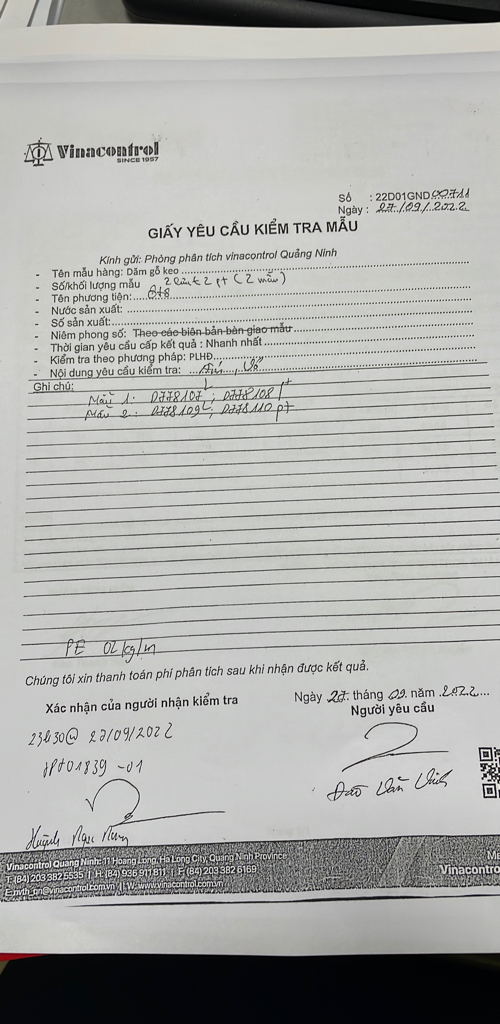 Vinacontrol
SINCE 1957
Số : 22D01GND00711
Ngày : 27/09/2022
GIẤY YÊU CẦU KIỂM TRA MẪU
Kính gửi: Phòng phân tích vinacontrol Quảng Ninh
- Tên mẫu hàng: Dăm gỗ keo
- Số/khối lượng mẫu 2 pt (2 mẫu)
- Tên phương tiện:
- Nước sản xuất:
- Số sản xuất:
- Niêm phong số: Theo các biên bản bàn giao mẫu
- Thời gian yêu cầu cấp kết quả : Nhanh nhất
- Kiểm tra theo phương pháp: PLHĐ
- Nội dung yêu cầu kiểm tra:
Ghi chú:
Mẫu 1: D778107L; D778108 pt
Mẫu 2: D778109L; D778110 pt
PE 02/kg/m
Chúng tôi xin thanh toán phí phân tích sau khi nhận được kết quả.
Xác nhận của người nhận kiểm tra
Ngày 27 tháng 09 năm 2022
Người yêu cầu
23h30@ 27/09/2022
01839-01
Đào Văn
Huỳnh Ngọc
Vinacontrol Quang Ninh: 11 Hoang Long, Ha Long City, Quang Ninh Province
T: (84) 203 382 5535 | H: (84) 936 911 811 | F: (84) 203 382 6169
E: nvth_qn@vinacontrol.com.vn | W: www.vinacontrol.com.vn
Me
Vinacontro